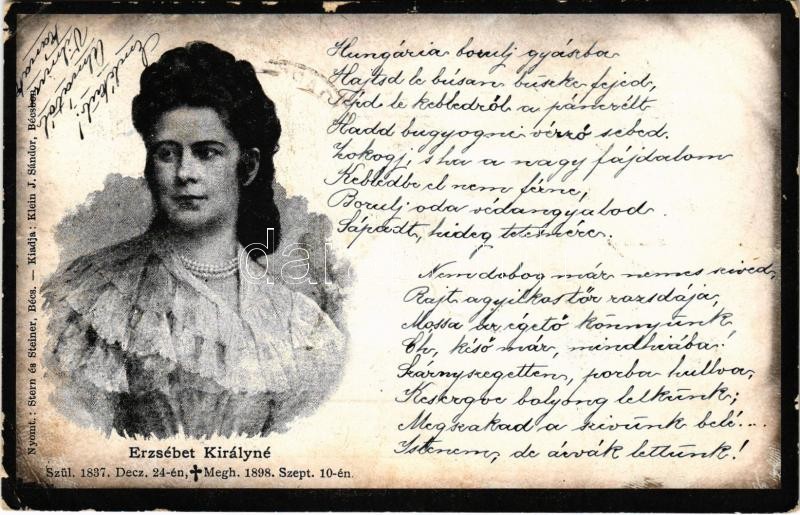 Emlékül!
Hungária borulj gyászba
Hajtsd le búsan büszke fejed,
Tépd le kebledről a pánczélt
Hadd bugyogni vérző sebed.
Zokogj, s ha a nagy fájdalom
Kebledbe el nem férne,
Borulj oda védangyalod
Sápadt, hideg tetemére.
Nem dobog már nemes szivéd,
Rajt a gyilkos tőr rozsdája,
Mossa bár égető könnyünk,
Oh, késő már, mindhiába!
Szárnyszegetten, porba hullva,
Keseregve bolyong lelkünk;
Megszakad a szivünk belé!...
Istenem, de árvák lettünk!
Nyomt.: Stern és Steiner, Bécs. — Kiadja: Klein J. Sándor, Bécsben
Erzsébet Királyné
Szül. 1837. Decz. 24-én, ✝ Megh. 1898. Szept. 10-én.